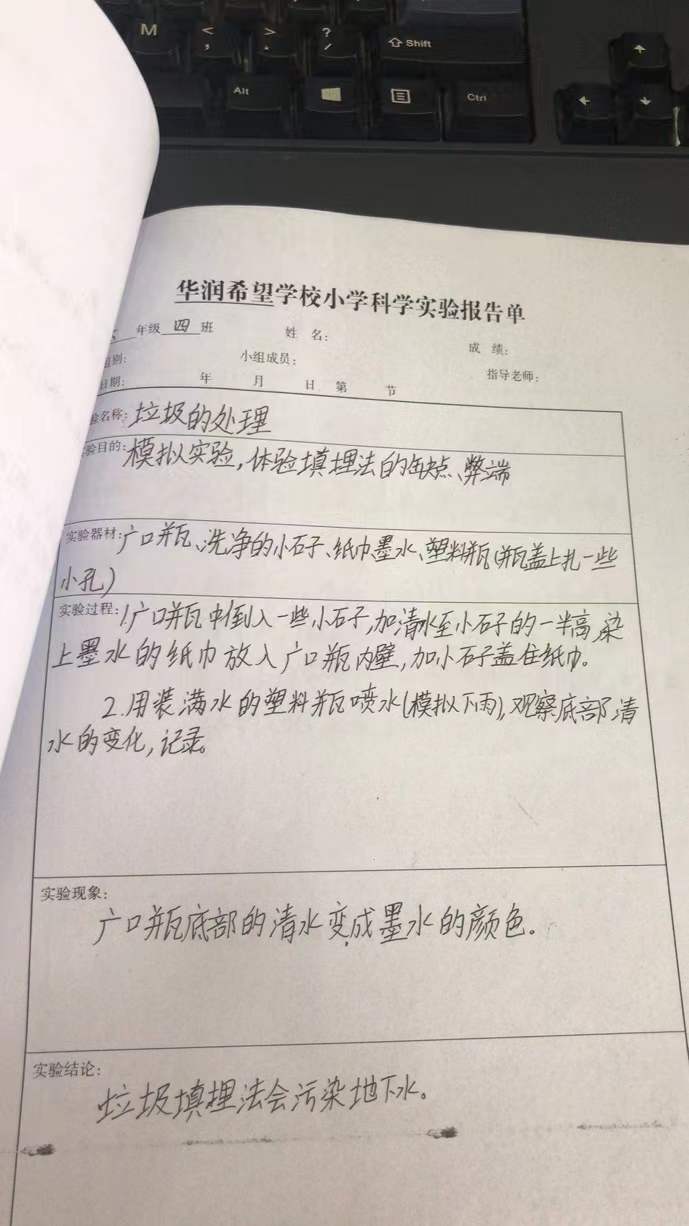 M < , > . ? / Shift
Alt Ctrl
华润希望学校小学科学实验报告单
年级 四 班 姓 名: 成 绩:
组别: 小组成员: 指导老师:
日期: 年 月 日 第 节
验名称: 垃圾的处理
验目的: 模拟实验,体验填埋法的缺点、弊端
实验器材: 广口瓶、洗净的小石子、纸巾墨水、塑料瓶(瓶盖上扎一些
小孔)
实验过程: 1.广口瓶中倒入一些小石子,加清水至小石子的一半高,染
上墨水的纸巾放入广口瓶内壁,加小石子盖住纸巾。
2.用装满水的塑料瓶喷水(模拟下雨),观察底部清
水的变化,记录。
实验现象:
广口瓶底部的清水变成墨水的颜色。
实验结论:
垃圾填埋法会污染地下水。